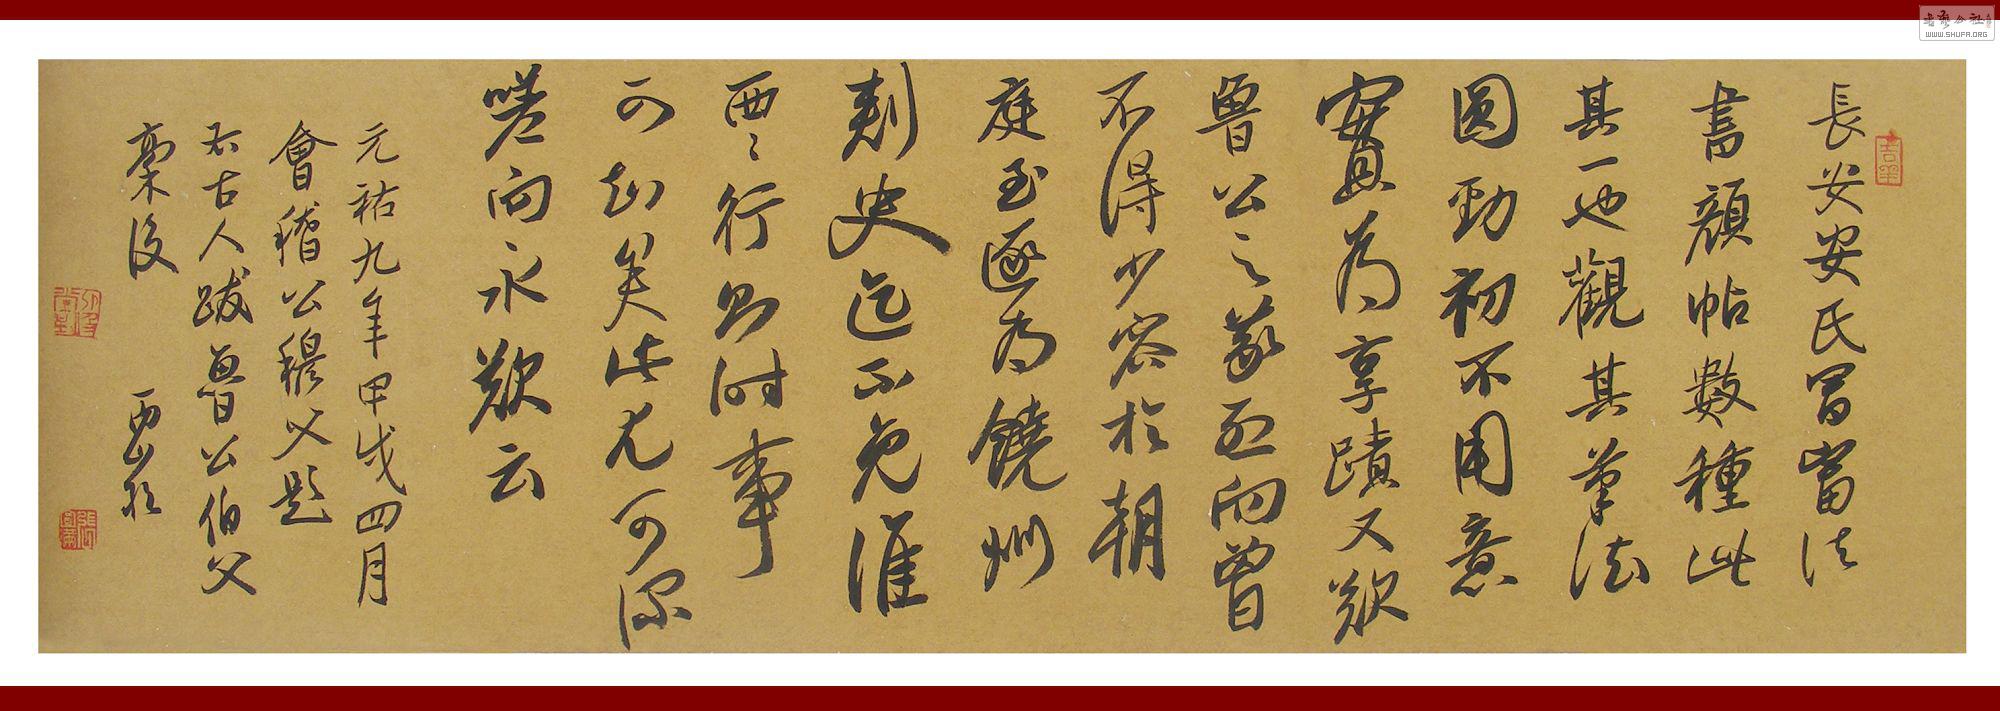 長安安氏冨當法
書顔帖數種此
其一也觀其筆法
圓勁初不用意
實為享蹟又歎
魯公之義烈而曾
不得少容於朝
庭至逐為饒州
刺史迄不免淮
西之行則時事
可知矣此尤可深
嗟而永歎云
元祐九年甲戌四月
會稽公穆父題
右古人跋魯公伯父
稾後
書藝公社
WWW.SHUFA.ORG